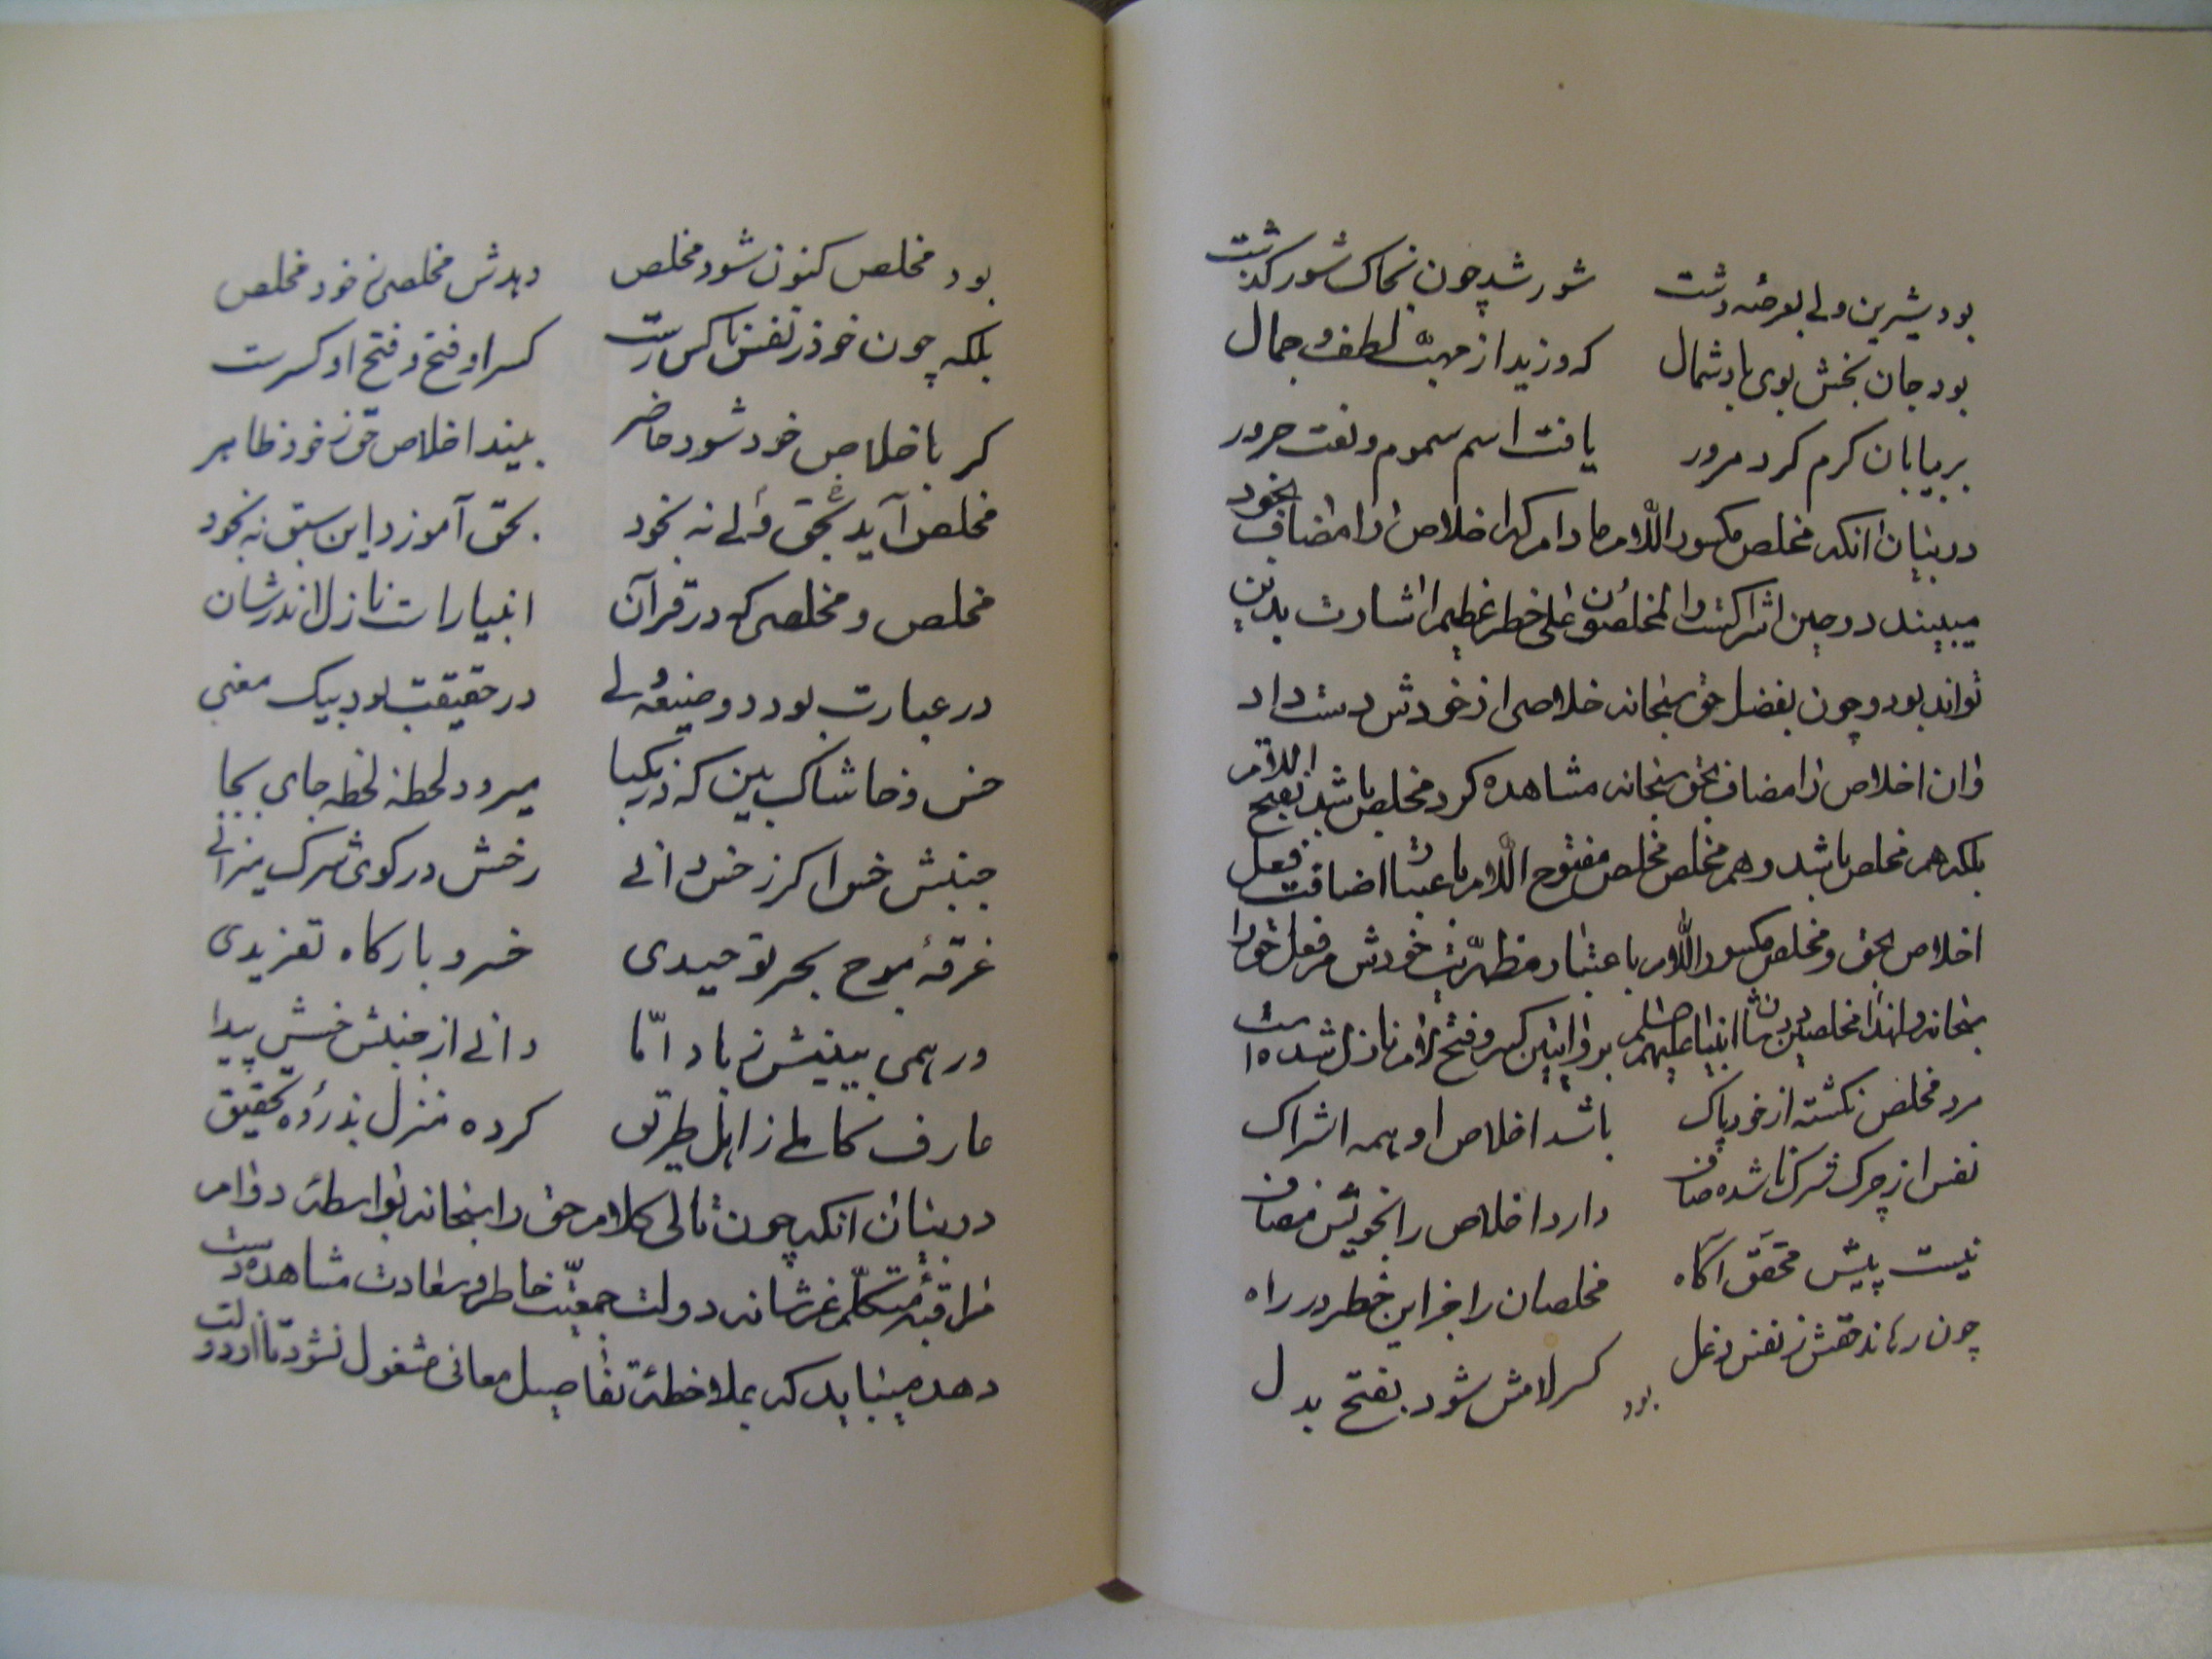 بود شیرین ولی بعرصه دشت شور شد چون بخاک شور گذشت
بود جان بخش بوی باد شمال که وزید از مهبّ لطف و جمال
بر بیابان کرم کرد مرور یافت اسم سموم و نعت حرور
در بیان آنکه مخلص مکسور اللام مادام که اخلاص را مضاف بخود
میبیند در عین اشراکست والمخلصون علی خطر عظیم اشارت بدین
تواند بود و چون بفضل حق سبحانه خلاصی از خودش دست داد
و آن اخلاص را مضاف بحق سبحانه مشاهده کرد مخلص باشد بفتح اللام
بلکه هم مخلص باشد و هم مخلص مخلص مفتوح اللام باعتبار اضافت فعل
اخلاص بحق و مخلص مکسور اللام باعتبار مظهریت خودش مر فعل حق را
سبحانه و لهذا مخلصین در شان انبیا علیهم بروایتین کسر و فتح لام نازل شده است
مرد مخلص نگشته از خود پاک باشد اخلاص او همه اشراک
نفس از چرک شرک نا شده صاف دارد اخلاص را بخویش مضاف
نیست پیش محقق آگاه مخلصان را جز این خطر در راه
چون رهاند حقش ز نفس دغل کسر لامش شود بفتح بدل
بود
بود مخلص کنون شود مخلص دهدش مخلصی ز خود مخلص
بلکه چون خود ز نفس ناکس رست کسر او فتح و فتح او کسرست
گر باخلاص خود شود حاضر بیند اخلاص حق ز خود ظاهر
مخلص آید بحق ولی نه بخود بحق آموزد این سبق نه بخود
مخلص و مخلصی که در قرآن انبیا راست نازل اندر شان
در عبارت بود دو صیغه ولی در حقیقت بود بیک معنی
خس و خاشاک بین که در یکبا میرود لحظه لحظه جای بجا
جنبش خس اگر ز خس دانی رخش در کوی شرک میرانی
غرقه موج بحر توحیدی خسرو بارگاه تفریدی
ور همی بینیش ز باد امّا دانی از جنبش خسش پیدا
عارف کاملی ز اهل طریق کرده منزل بذروه تحقیق
در بیان آنکه چون تالی کلام حق را سبحانه بواسطه دوام
مراقبه متکلم عز شانه دولت جمعیّت خاطر و سعادت مشاهده دست
دهد میباید که بملاحظه تفاصیل معانی مشغول نشود تا از دولت